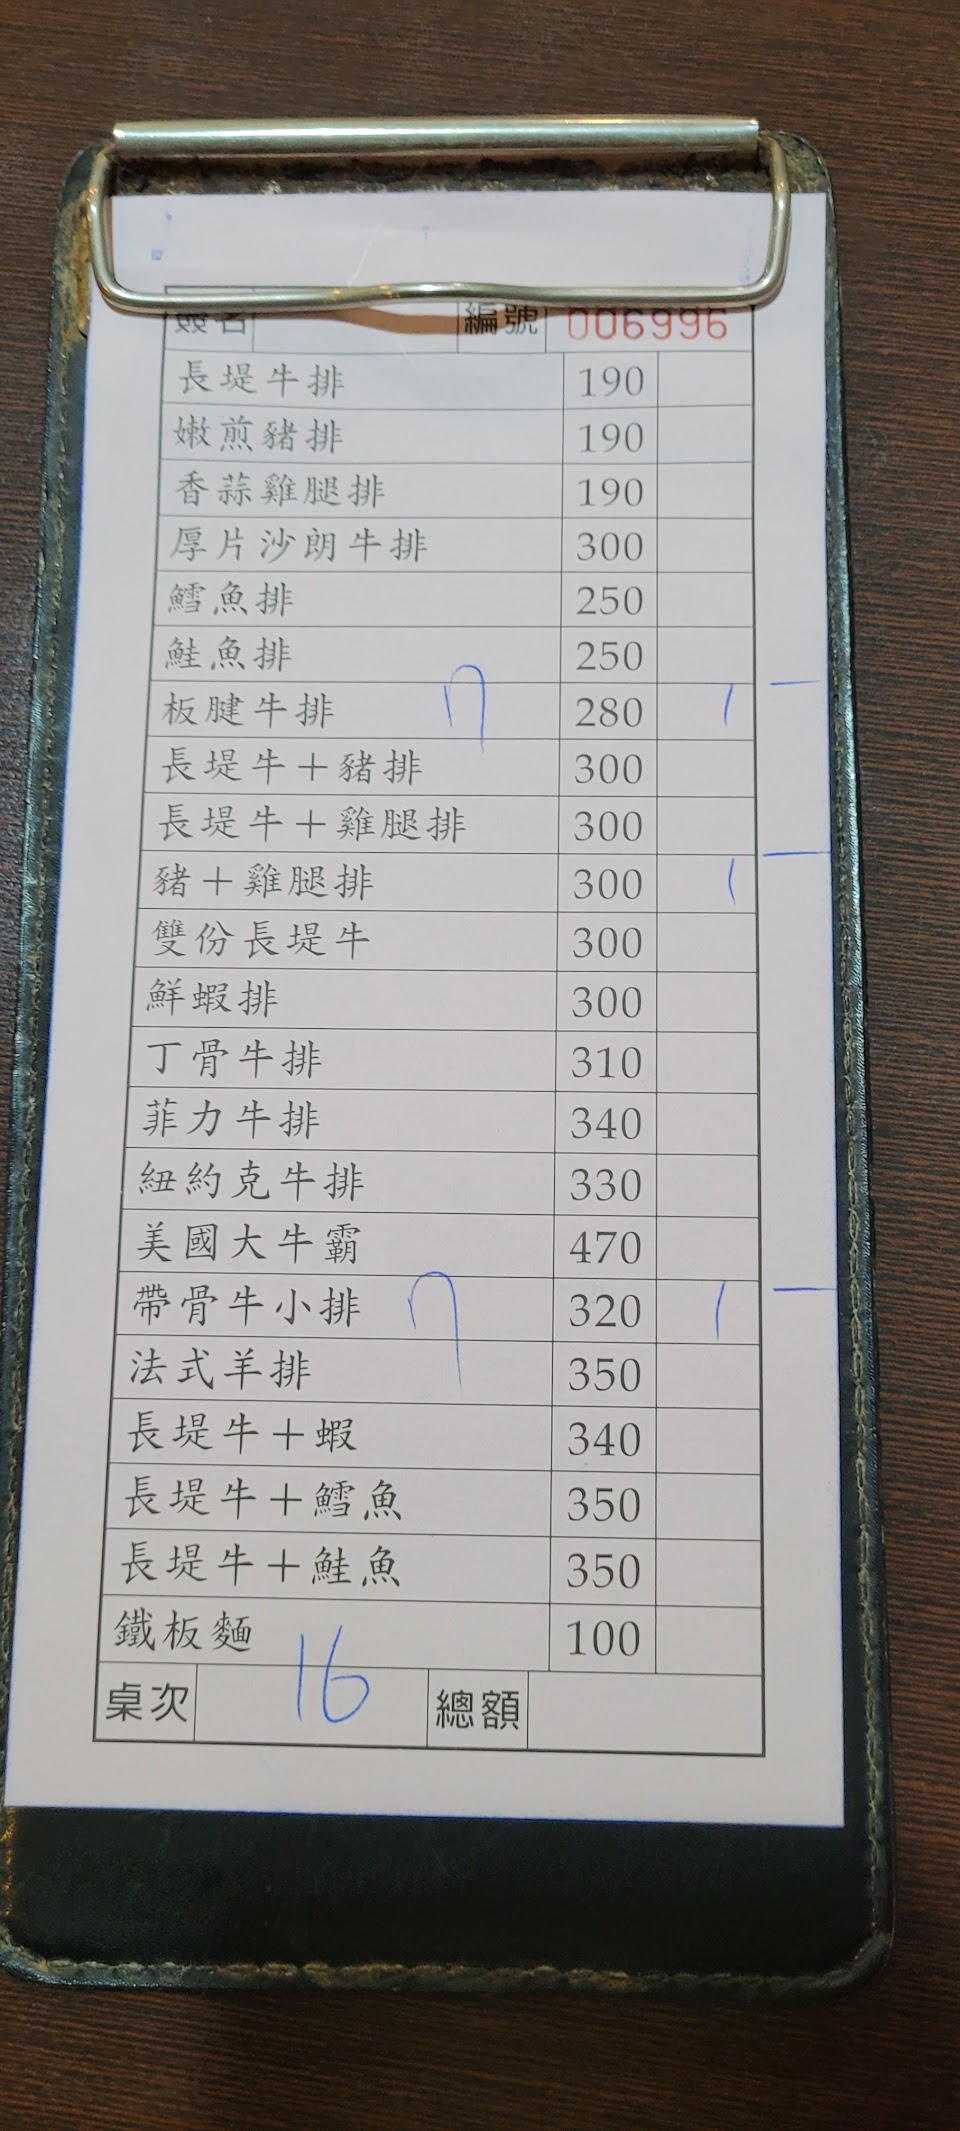 簽名 編號 006996
長堤牛排 190
嫩煎豬排 190
香蒜雞腿排 190
厚片沙朗牛排 300
鱈魚排 250
鮭魚排 250
板腱牛排 7 280 1 —
長堤牛＋豬排 300
長堤牛＋雞腿排 300
豬＋雞腿排 300 1 —
雙份長堤牛 300
鮮蝦排 300
丁骨牛排 310
菲力牛排 340
紐約克牛排 330
美國大牛霸 470
帶骨牛小排 7 320 1 —
法式羊排 350
長堤牛＋蝦 340
長堤牛＋鱈魚 350
長堤牛＋鮭魚 350
鐵板麵 100
桌次 16 總額